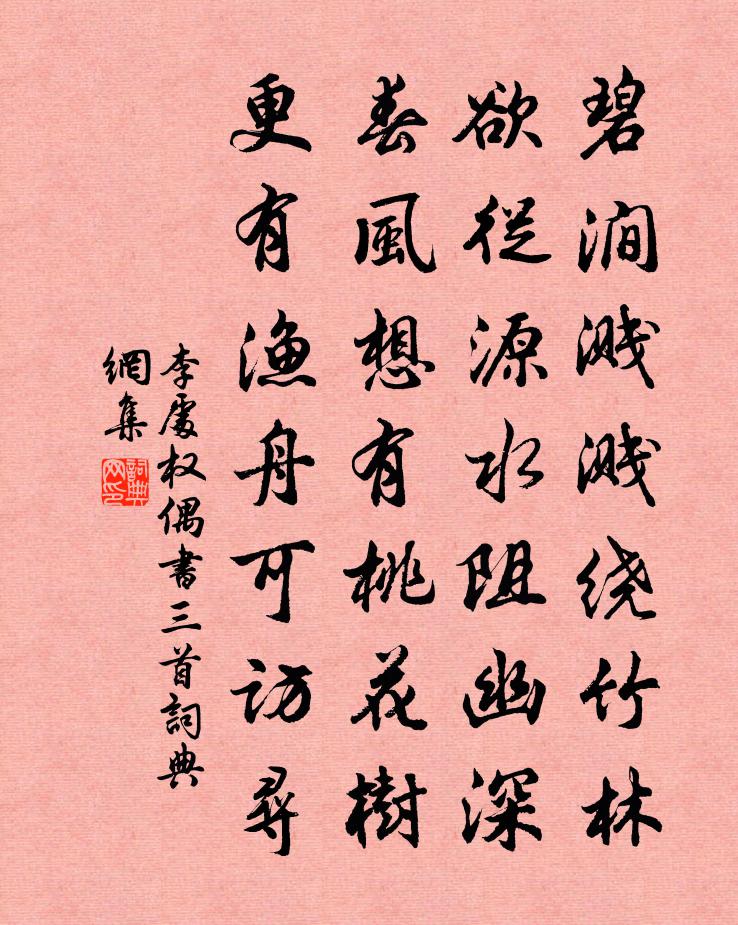 碧澗溅溅绕竹林
欲從源水阻幽深
春風想有桃花樹
更有渔舟可访尋
李處权偶書三首詞典
網集
詞典
网印